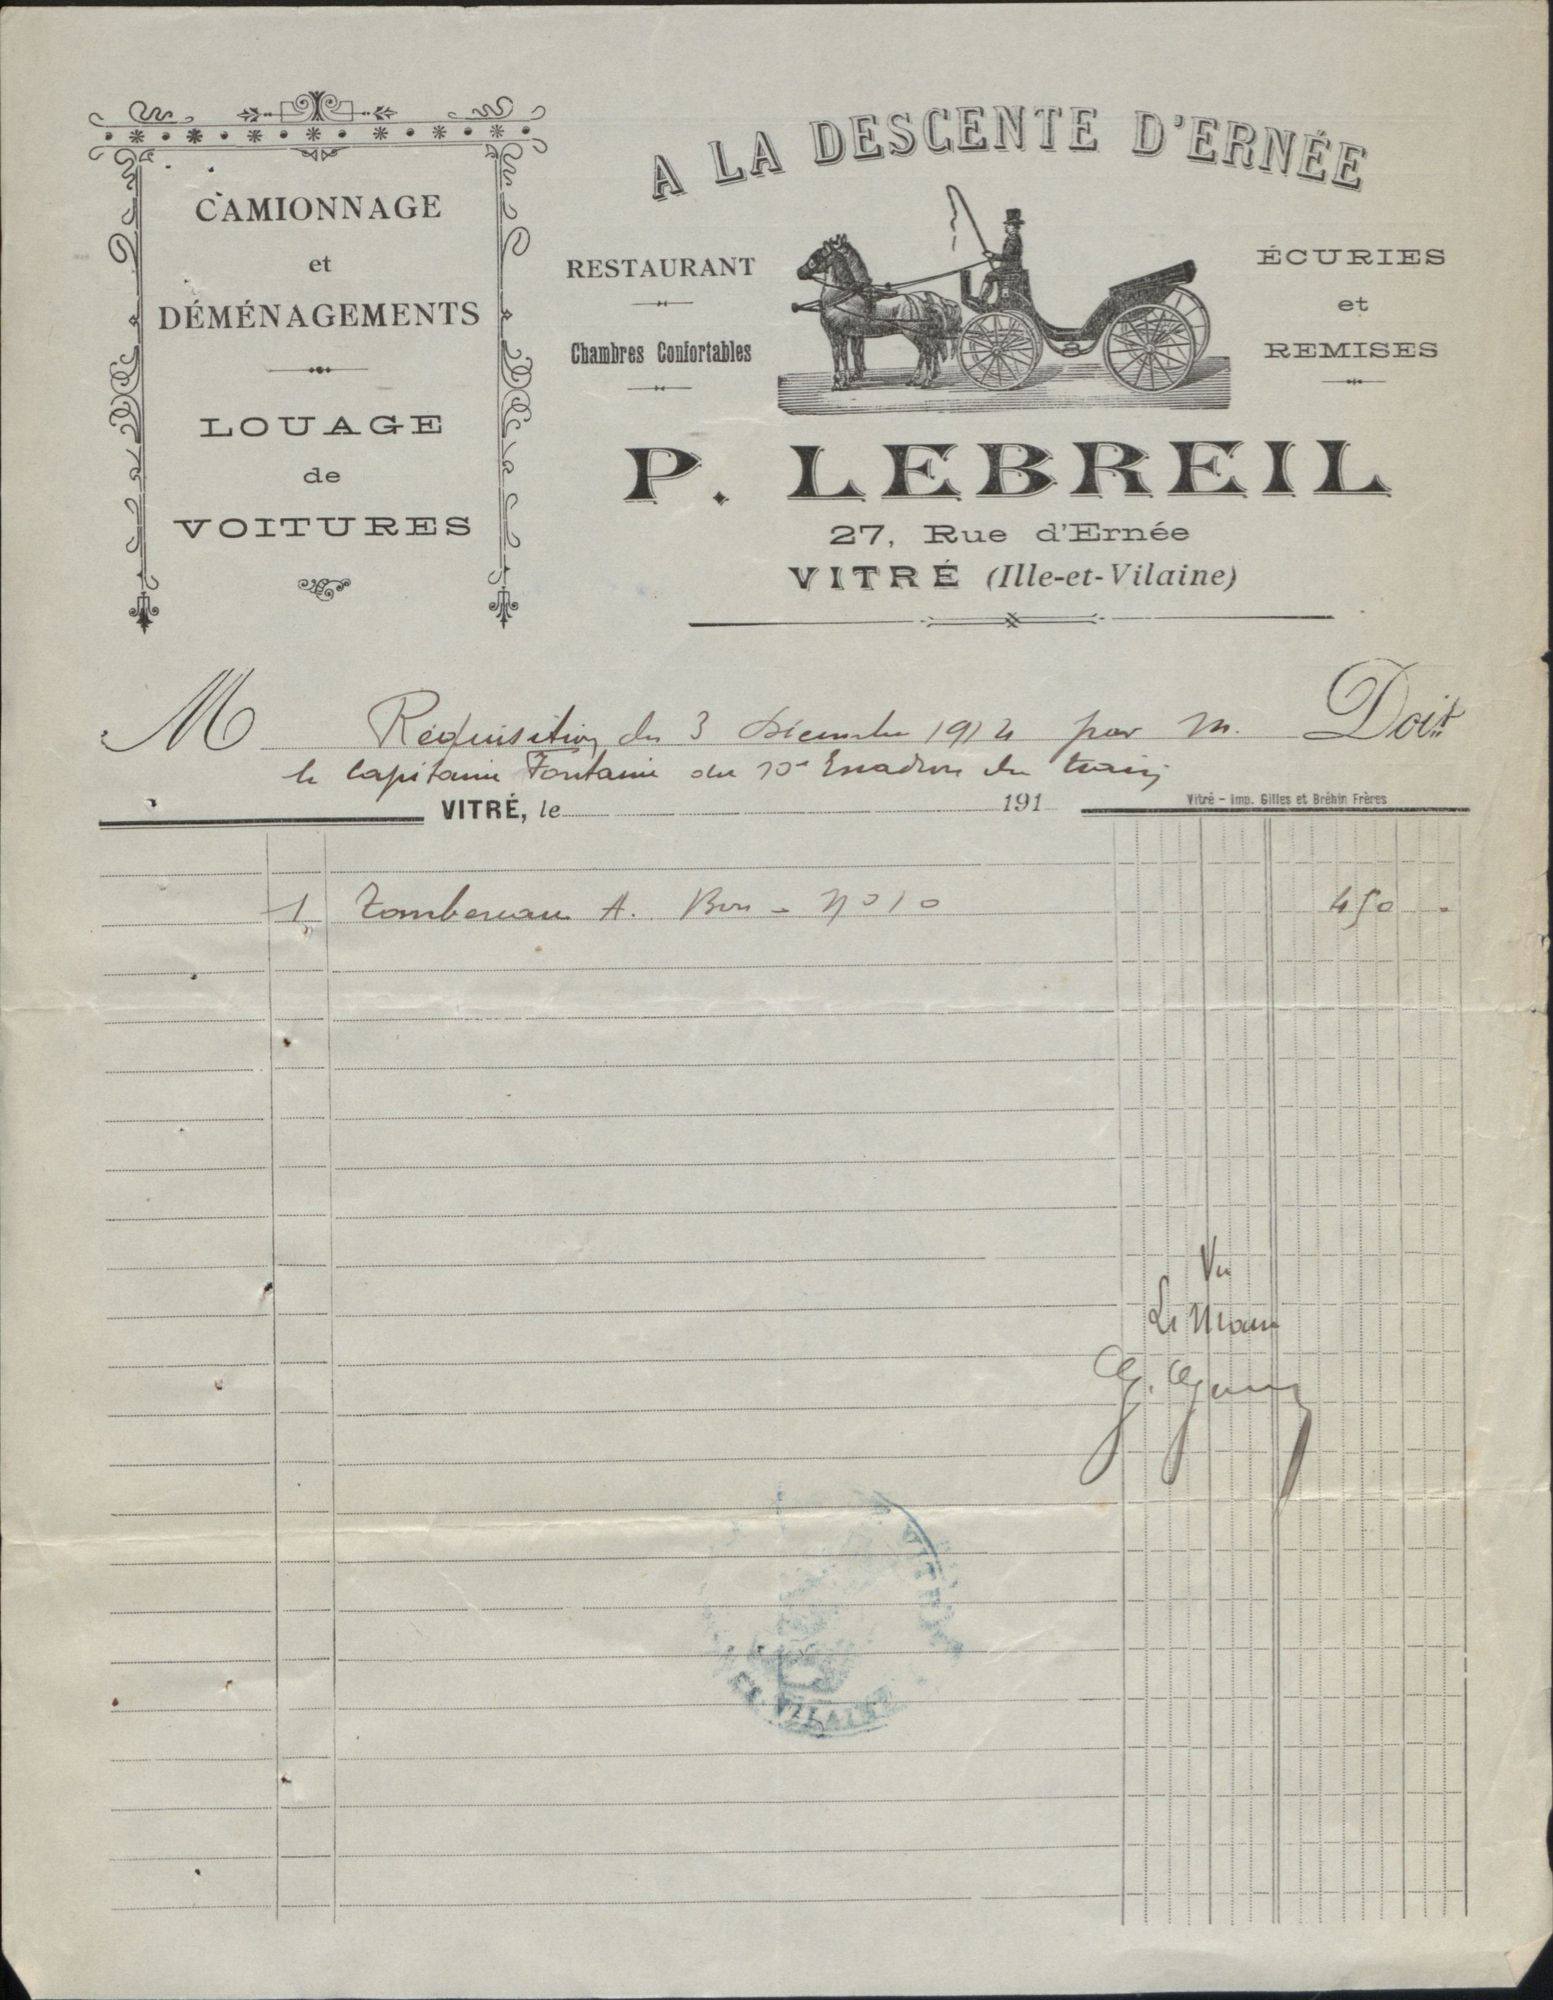 CAMIONNAGE
et
DÉMÉNAGEMENTS
LOUAGE
de
VOITURES
A LA DESCENTE D'ERNÉE
RESTAURANT
Chambres Confortables
ÉCURIES
et
REMISES
P. LEBREIL
27, Rue d'Ernée
VITRÉ (Ille-et-Vilaine)
M Réquisition du 3 Décembre 1914 par M. Doit
le Capitaine Fontaine du 10e Escadron du train
VITRÉ, le 191
Vitré - Imp. Gilles et Bréhin Frères
1 Tombereau A. Bon - No 10 450 -
Vu
Le Maire
VITRÉ
ET-VILAINE